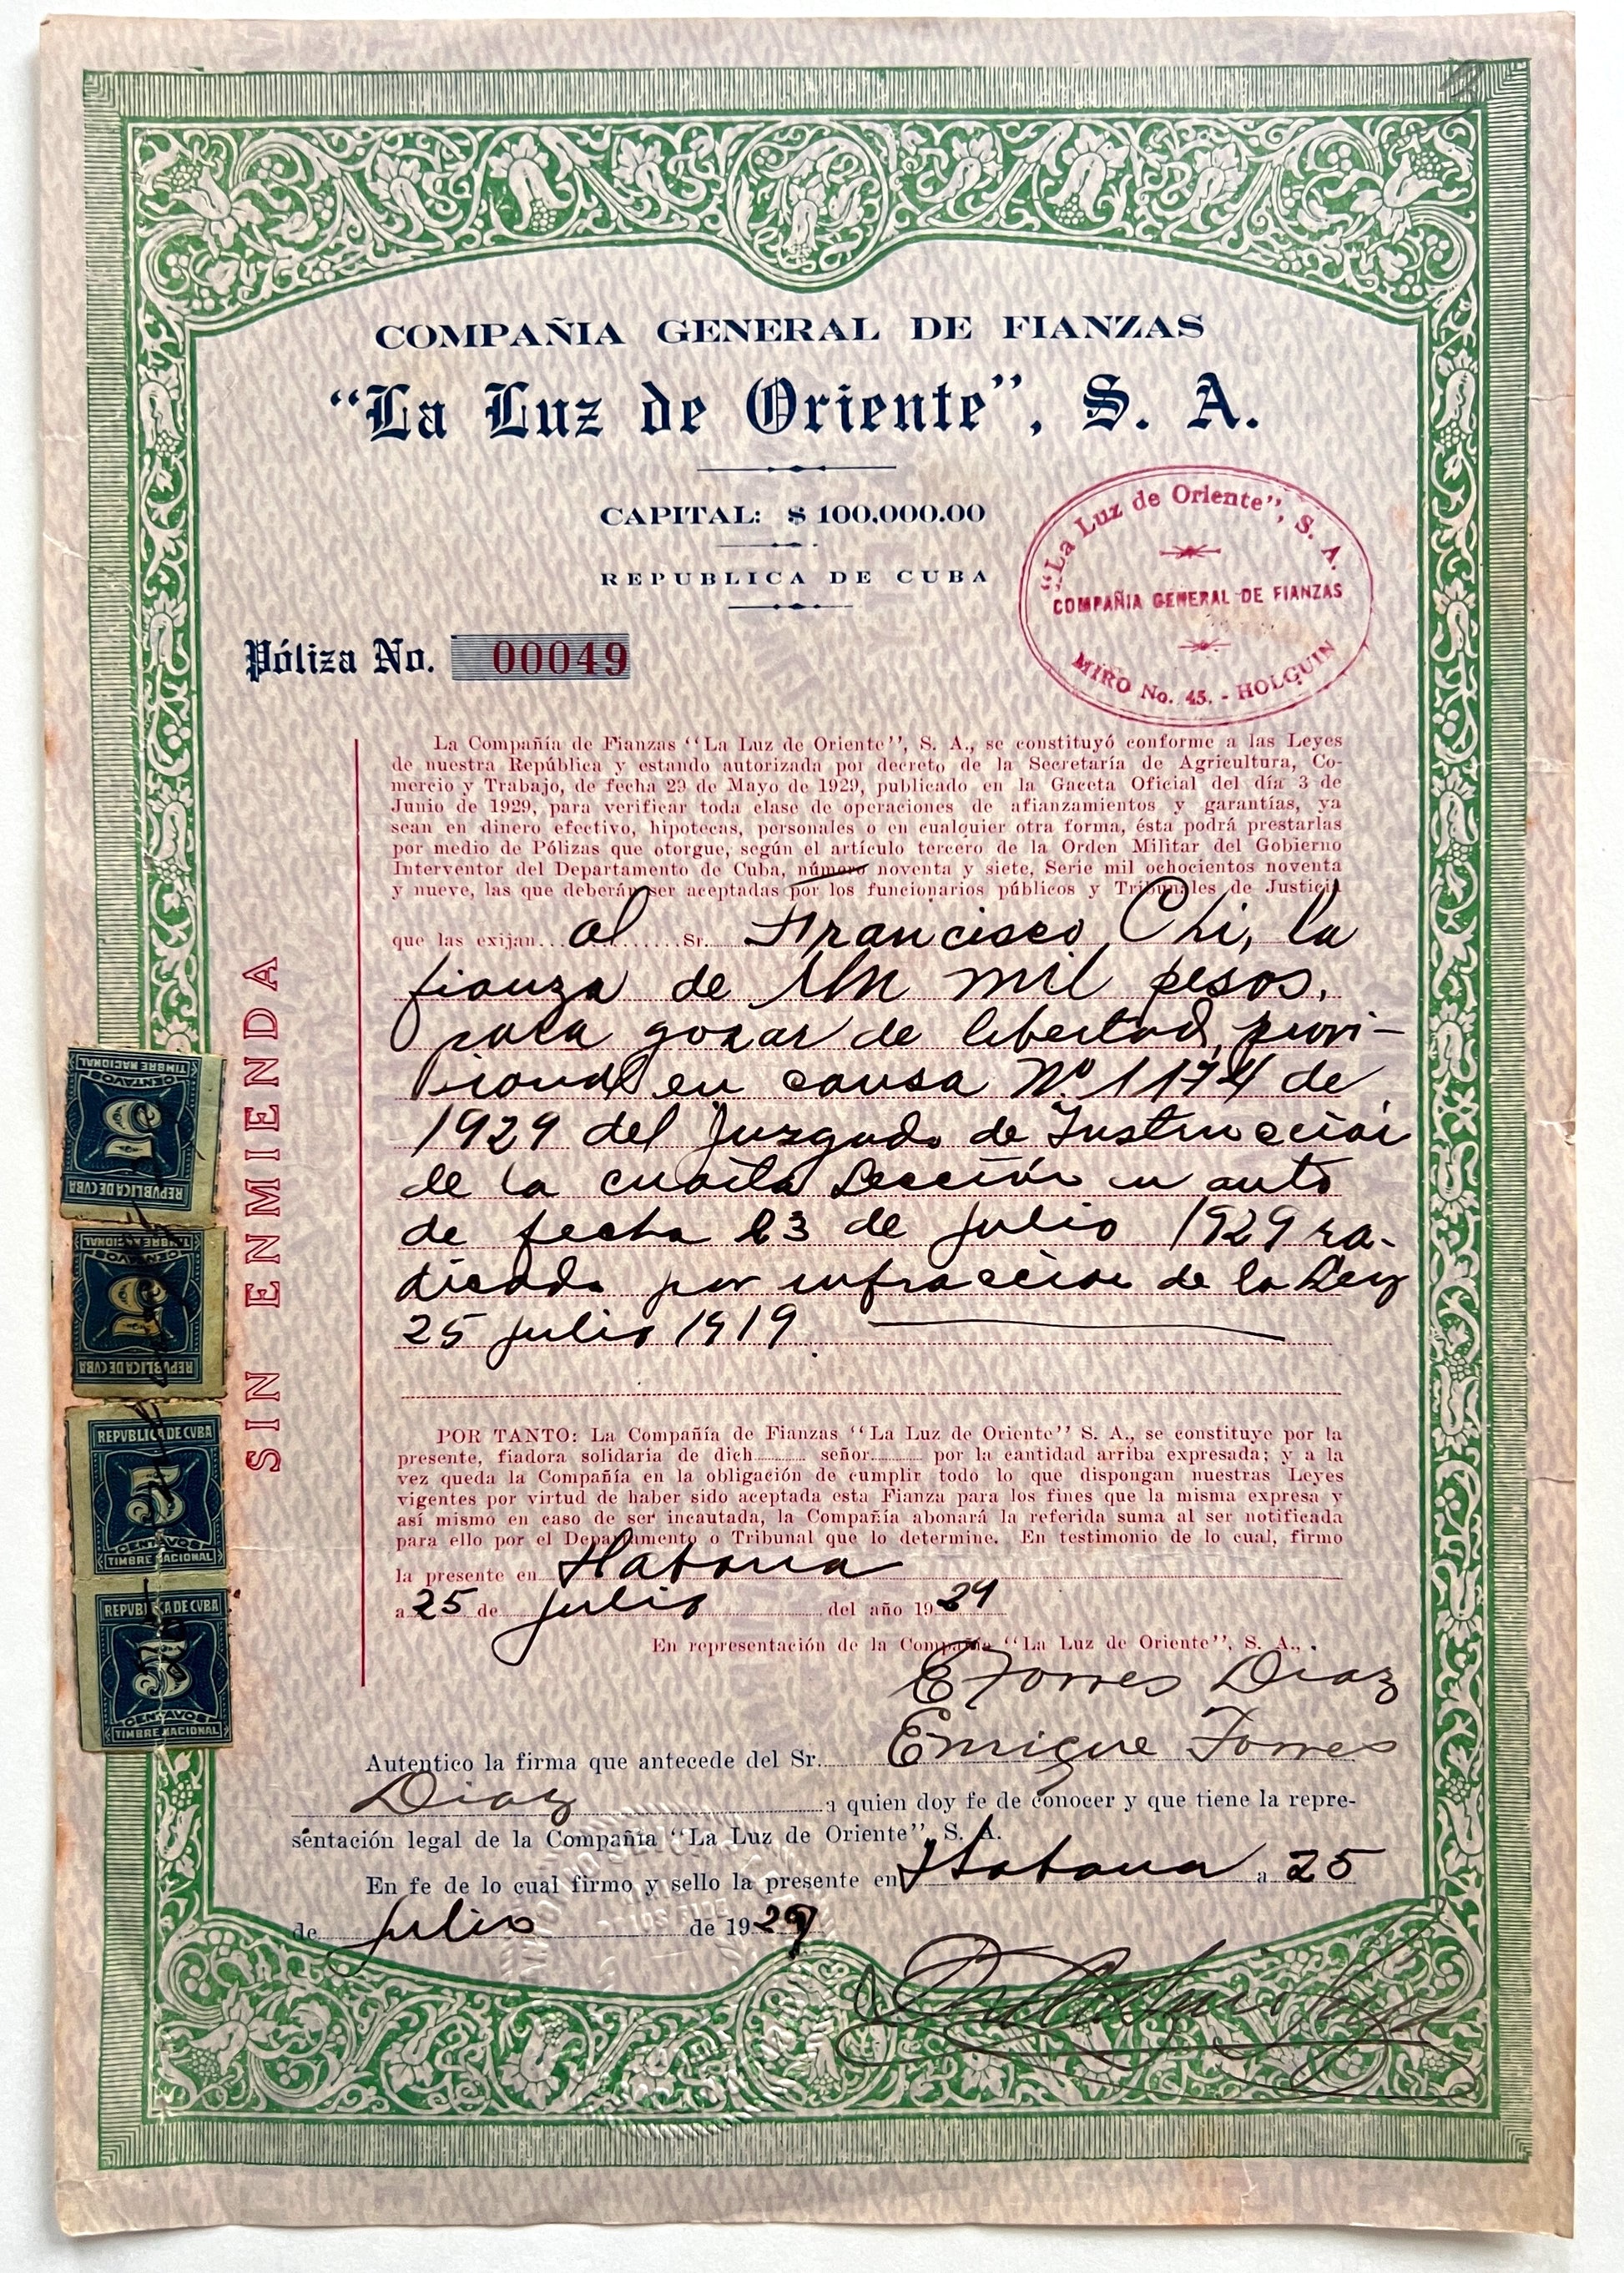 COMPAÑIA GENERAL DE FIANZAS
“La Luz de Oriente”, S. A.
CAPITAL: $ 100,000.00
REPUBLICA DE CUBA
“La Luz de Oriente”, S. A.
COMPAÑIA GENERAL DE FIANZAS
MIRO No. 45. - HOLGUIN
Póliza No. 00049
La Compañía de Fianzas “La Luz de Oriente”, S. A., se constituyó conforme a las Leyes
de nuestra República y estando autorizada por decreto de la Secretaría de Agricultura, Co-
mercio y Trabajo, de fecha 29 de Mayo de 1929, publicado en la Gaceta Oficial del día 3 de
Junio de 1929, para verificar toda clase de operaciones de afianzamientos y garantías, ya
sean en dinero efectivo, hipotecas, personales o en cualquier otra forma, ésta podrá prestarlas
por medio de Pólizas que otorgue, según el artículo tercero de la Orden Militar del Gobierno
Interventor del Departamento de Cuba, número noventa y siete, Serie mil ochocientos noventa
y nueve, las que deberán ser aceptadas por los funcionarios públicos y Tribunales de Justicia
que las exijan al Sr. Francisco Chi, la
fianza de un mil pesos,
para gozar de libertad provi-
sional en causa Nº 1174 de
1929 del Juzgado de Instruccion
de la cuarta Sección en auto
de fecha 23 de julio 1929 ra-
dicada por infraccion de la Ley
25 julio 1919
SIN ENMIENDA
POR TANTO: La Compañía de Fianzas “La Luz de Oriente” S. A., se constituye por la
presente, fiadora solidaria de dich señor por la cantidad arriba expresada; y a la
vez queda la Compañía en la obligación de cumplir todo lo que dispongan nuestras Leyes
vigentes por virtud de haber sido aceptada esta Fianza para los fines que la misma expresa y
así mismo en caso de ser incautada, la Compañía abonará la referida suma al ser notificada
para ello por el Departamento o Tribunal que lo determine. En testimonio de lo cual, firmo
la presente en Habana
a 25 de julio del año 1929
En representación de la Compañía “La Luz de Oriente”, S. A.,
E Torres Diaz
Autentico la firma que antecede del Sr. Enrique Torres
Diaz a quien doy fe de conocer y que tiene la repre-
sentación legal de la Compañía “La Luz de Oriente”, S. A.
En fe de lo cual firmo y sello la presente en Habana a 25
de julio de 1929
TIMBRE NACIONAL
CENTAVOS
REPUBLICA DE CUBA
TIMBRE NACIONAL
CENTAVOS
REPUBLICA DE CUBA
REPVBLICA DE CVBA
5
CENTAVOS
TIMBRE NACIONAL
REPVBLICA DE CVBA
5
CENTAVOS
TIMBRE NACIONAL